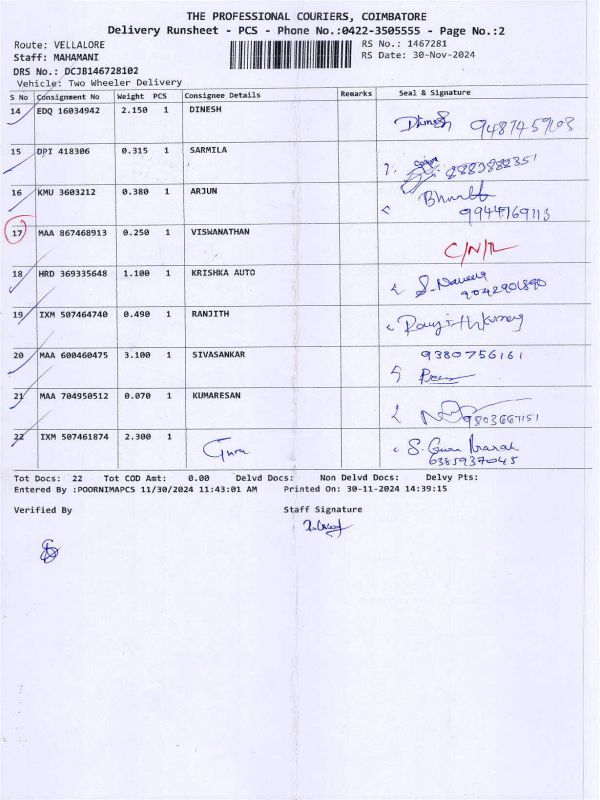 THE PROFESSIONAL COURIERS, COIMBATORE
Delivery Runsheet - PCS - Phone No.:0422-3505555 - Page No.:2
Route: VELLALORE
RS No.: 1467281
Staff: MAHAMANI
RS Date: 30-Nov-2024
DRS No.: DCJB146728102
Vehicle: Two Wheeler Delivery
S No Consignment No Weight PCS Consignee Details Remarks Seal & Signature
14 EDQ 16034942 2.150 1 DINESH Dinesh
15 DPI 418306 0.315 1 SARMILA
16 KMU 3603212 0.380 1 ARJUN
9944769113
17 MAA 867468913 0.250 1 VISWANATHAN C/N/R
18 HRD 369335648 1.100 1 KRISHKA AUTO
19 IXM 507464740 0.490 1 RANJITH
20 MAA 600460475 3.100 1 SIVASANKAR 9380756161
21 MAA 704950512 0.070 1 KUMARESAN
22 IXM 507461874 2.300 1 Guru
6385937045
Tot Docs: 22 Tot COD Amt: 0.00 Delvd Docs: Non Delvd Docs: Delvy Pts:
Entered By :POORNIMAPCS 11/30/2024 11:43:01 AM Printed On: 30-11-2024 14:39:15
Verified By Staff Signature